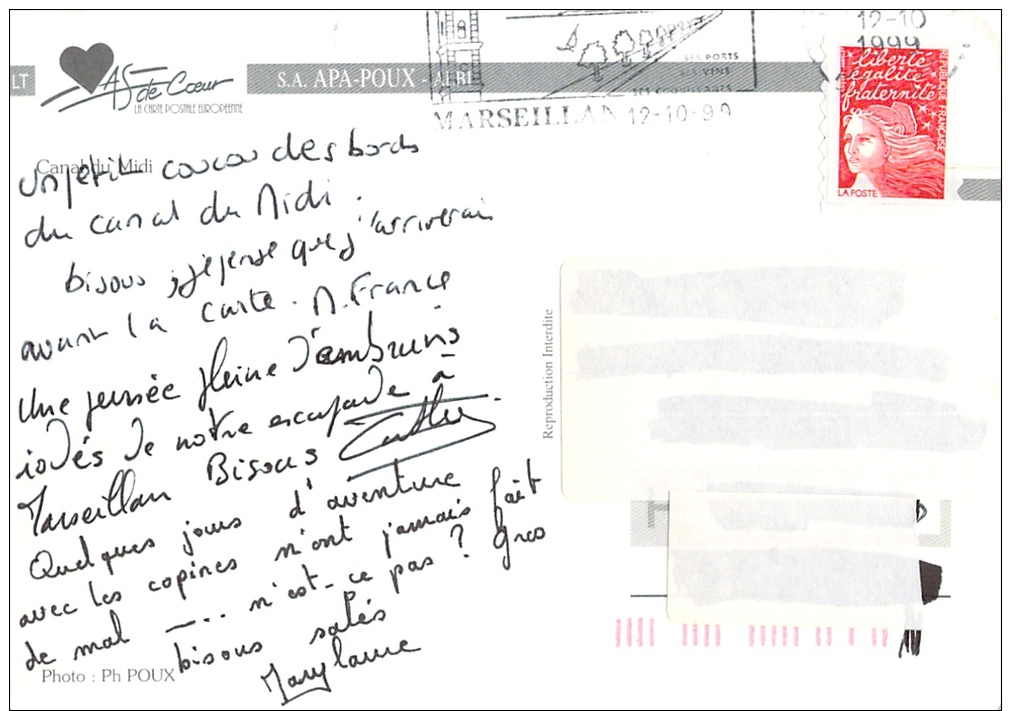 LT
AS de Coeur
LA CARTE POSTALE EUROPEENNE
S.A. APA-POUX - ALBI
SES PORTS
SES VINS
SES COQUILLAGES
MARSEILLAN 12-10-99
12-10
1999
liberté
égalité
fraternité
REPUBLIQUE FRANÇAISE
LA POSTE
Canal du Midi
un petit coucou des bords
du canal du Midi.
bisous, je pense que j'arriverai
avant la carte. M.France
Une pensée pleine d'embruns
iodés de notre escapade à
Marseillan Bisous
Quelques jours d'aventure
avec les copines n'ont jamais fait
de mal ---.. n'est-ce pas ? Gros
bisous salés
Marylaure
Photo : Ph POUX
Reproduction Interdite